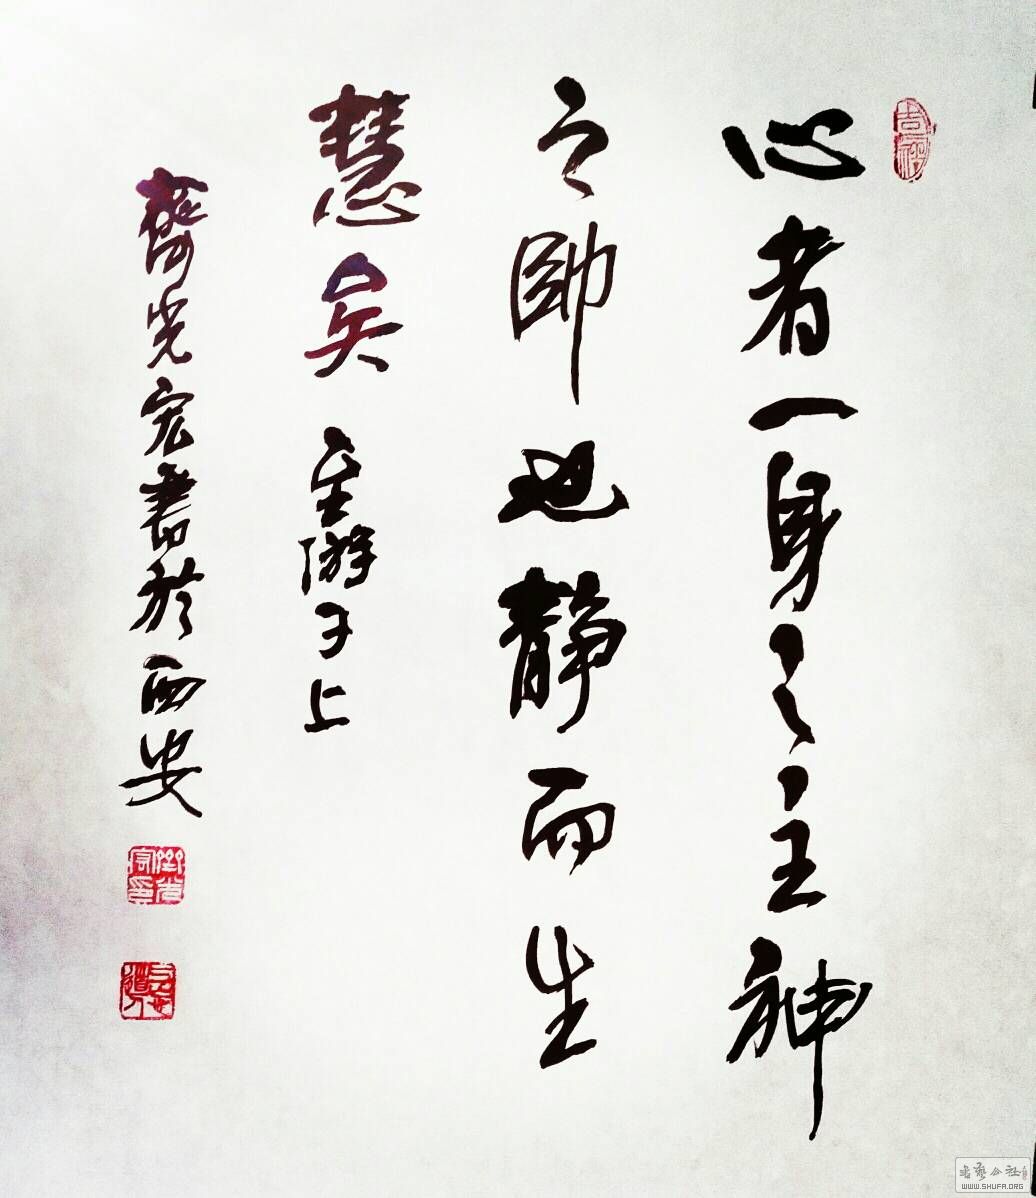 吉祥
心者一身之主神
之帥也靜而生
慧矣 至游子上
齊光宏書於西安
书艺公社
WWW.SHUFA.ORG